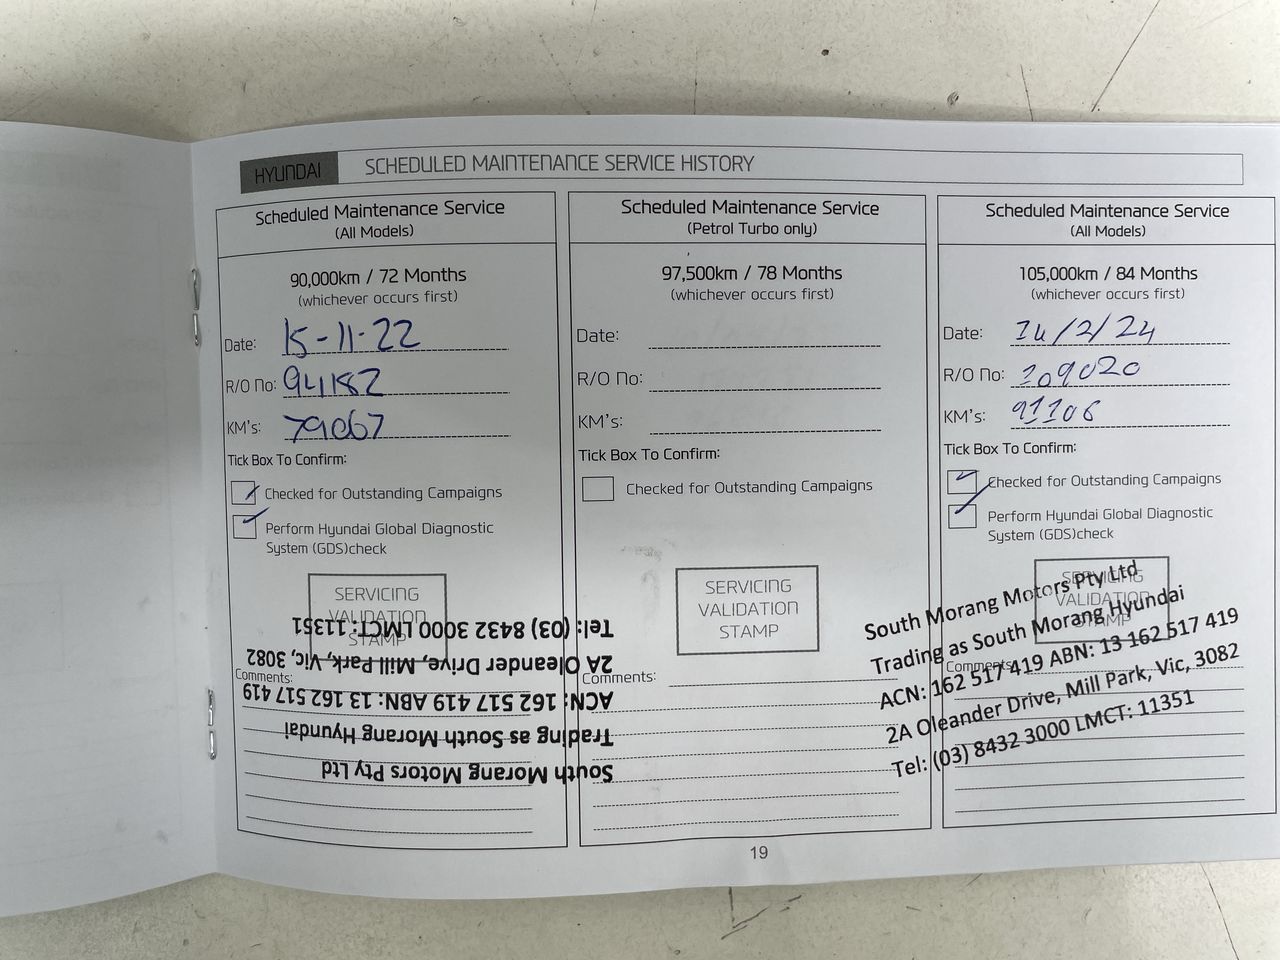 HYUNDAI SCHEDULED MAINTENANCE SERVICE HISTORY
Scheduled Maintenance Service
(All Models)
90,000km / 72 Months
(whichever occurs first)
Date: 15-11-22
R/O No: 94182
KM's: 79067
Tick Box To Confirm:
Checked for Outstanding Campaigns
Perform Hyundai Global Diagnostic
System (GDS)check
SERVICING
VALIDATION
STAMP
Comments:
South Morang Motors Pty Ltd
Trading as South Morang Hyundai
ACN: 162 517 419 ABN: 13 162 517 419
2A Oleander Drive, Mill Park, Vic, 3082
Tel: (03) 8432 3000 LMCT: 11351
Scheduled Maintenance Service
(Petrol Turbo only)
97,500km / 78 Months
(whichever occurs first)
Date:
R/O No:
KM's:
Tick Box To Confirm:
Checked for Outstanding Campaigns
SERVICING
VALIDATION
STAMP
Comments:
Scheduled Maintenance Service
(All Models)
105,000km / 84 Months
(whichever occurs first)
Date: 14/2/24
R/O No: 109020
KM's: 91106
Tick Box To Confirm:
Checked for Outstanding Campaigns
Perform Hyundai Global Diagnostic
System (GDS)check
SERVICING
VALIDATION
STAMP
Comments:
South Morang Motors Pty Ltd
Trading as South Morang Hyundai
ACN: 162 517 419 ABN: 13 162 517 419
2A Oleander Drive, Mill Park, Vic, 3082
Tel: (03) 8432 3000 LMCT: 11351
19